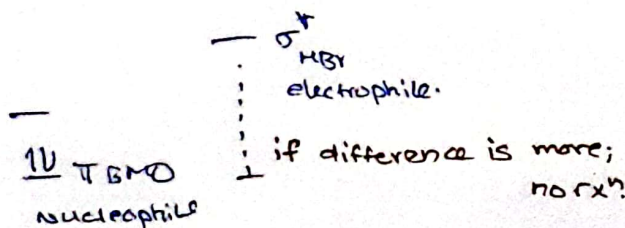 σ*
HBr
electrophile.
1l π BMO
Nucleophile
if difference is more;
no rxⁿ.